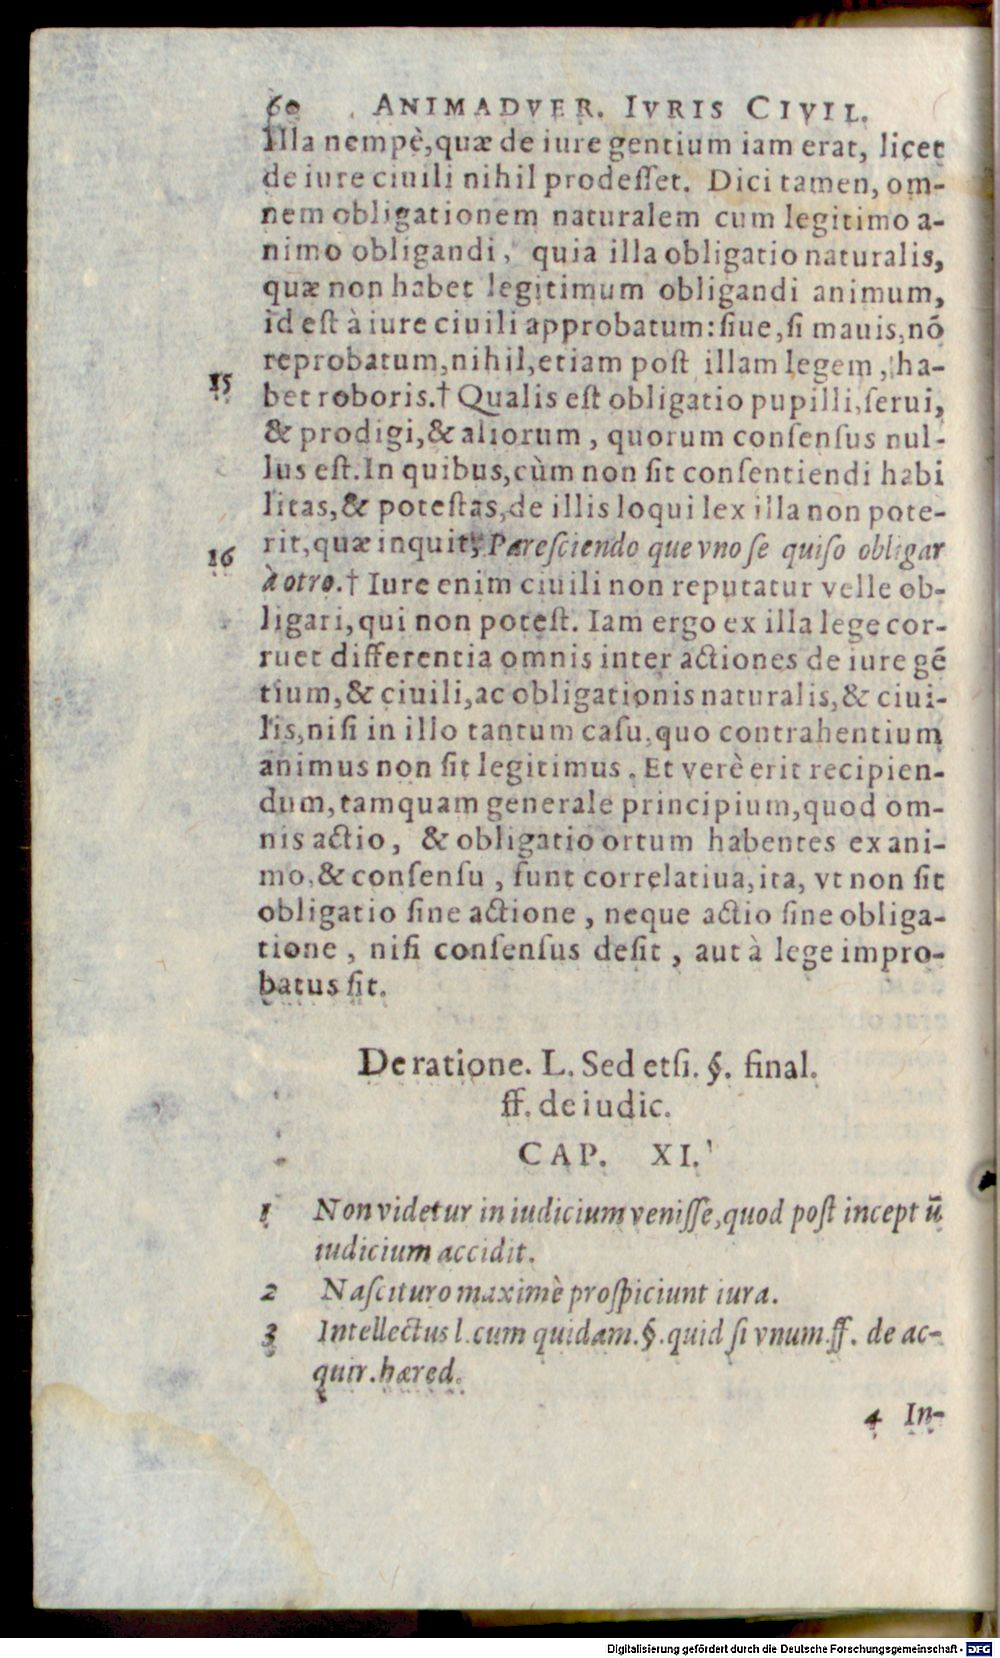 60 ANIMADVER. IVRIS CIVIL.
Illa nempè, quæ de iure gentium iam erat, licet
de iure ciuili nihil prodeſſet. Dici tamen, om-
nem obligationem naturalem cum legitimo a-
nimo obligandi, quia illa obligatio naturalis,
quæ non habet legitimum obligandi animum,
id eſt à iure ciuili approbatum: ſiue, ſi mauis, nõ
reprobatum, nihil, etiam poſt illam legem, ha-
15 bet roboris.† Qualis eſt obligatio pupilli, ſerui,
& prodigi, & aliorum, quorum conſenſus nul-
lus eſt. In quibus, cùm non ſit conſentiendi habi
litas, & poteſtas, de illis loqui lex illa non pote-
16 rit, quæ inquit, Pareſciendo que vno ſe quiſo obligar
à otro.† Iure enim ciuili non reputatur velle ob-
ligari, qui non poteſt. Iam ergo ex illa lege cor-
ruet differentia omnis inter actiones de iure gẽ
tium, & ciuili, ac obligationis naturalis, & ciui-
lis, niſi in illo tantum caſu, quo contrahentium
animus non ſit legitimus. Et verè erit recipien-
dum, tamquam generale principium, quod om-
nis actio, & obligatio ortum habentes ex ani-
mo, & conſenſu, ſunt correlatiua, ita, vt non ſit
obligatio ſine actione, neque actio ſine obliga-
tione, niſi conſenſus deſit, aut à lege impro-
batus ſit.
De ratione. L. Sed etſi. §. final.
ff. de iudic.
CAP. XI.
1 Non videtur in iudicium veniſſe, quod poſt inceptũ
iudicium accidit.
2 Naſcituro maximè proſpiciunt iura.
3 Intellectus l. cum quidam. §. quid ſi vnum. ff. de ac-
quir. hæred.
4 In-
Digitalisierung gefördert durch die Deutsche Forschungsgemeinschaft - DFG